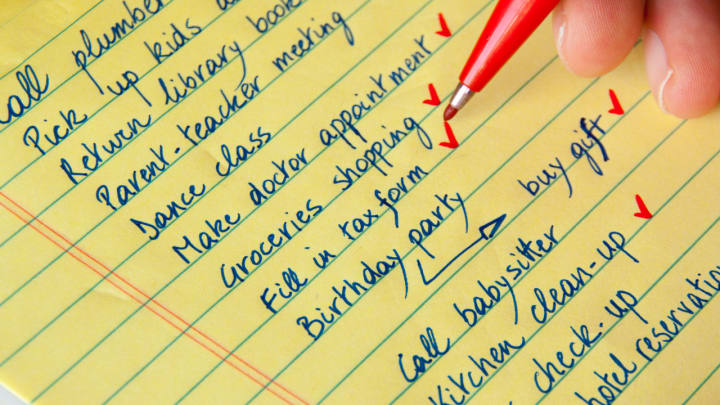 Call plumber
Pick up kids
Return library book
Parent-teacher meeting
Dance class
Make doctor appointment
Groceries shopping
Fill in tax form
Birthday party buy gift
Call babysitter
Kitchen clean-up
check-up
hotel reservation